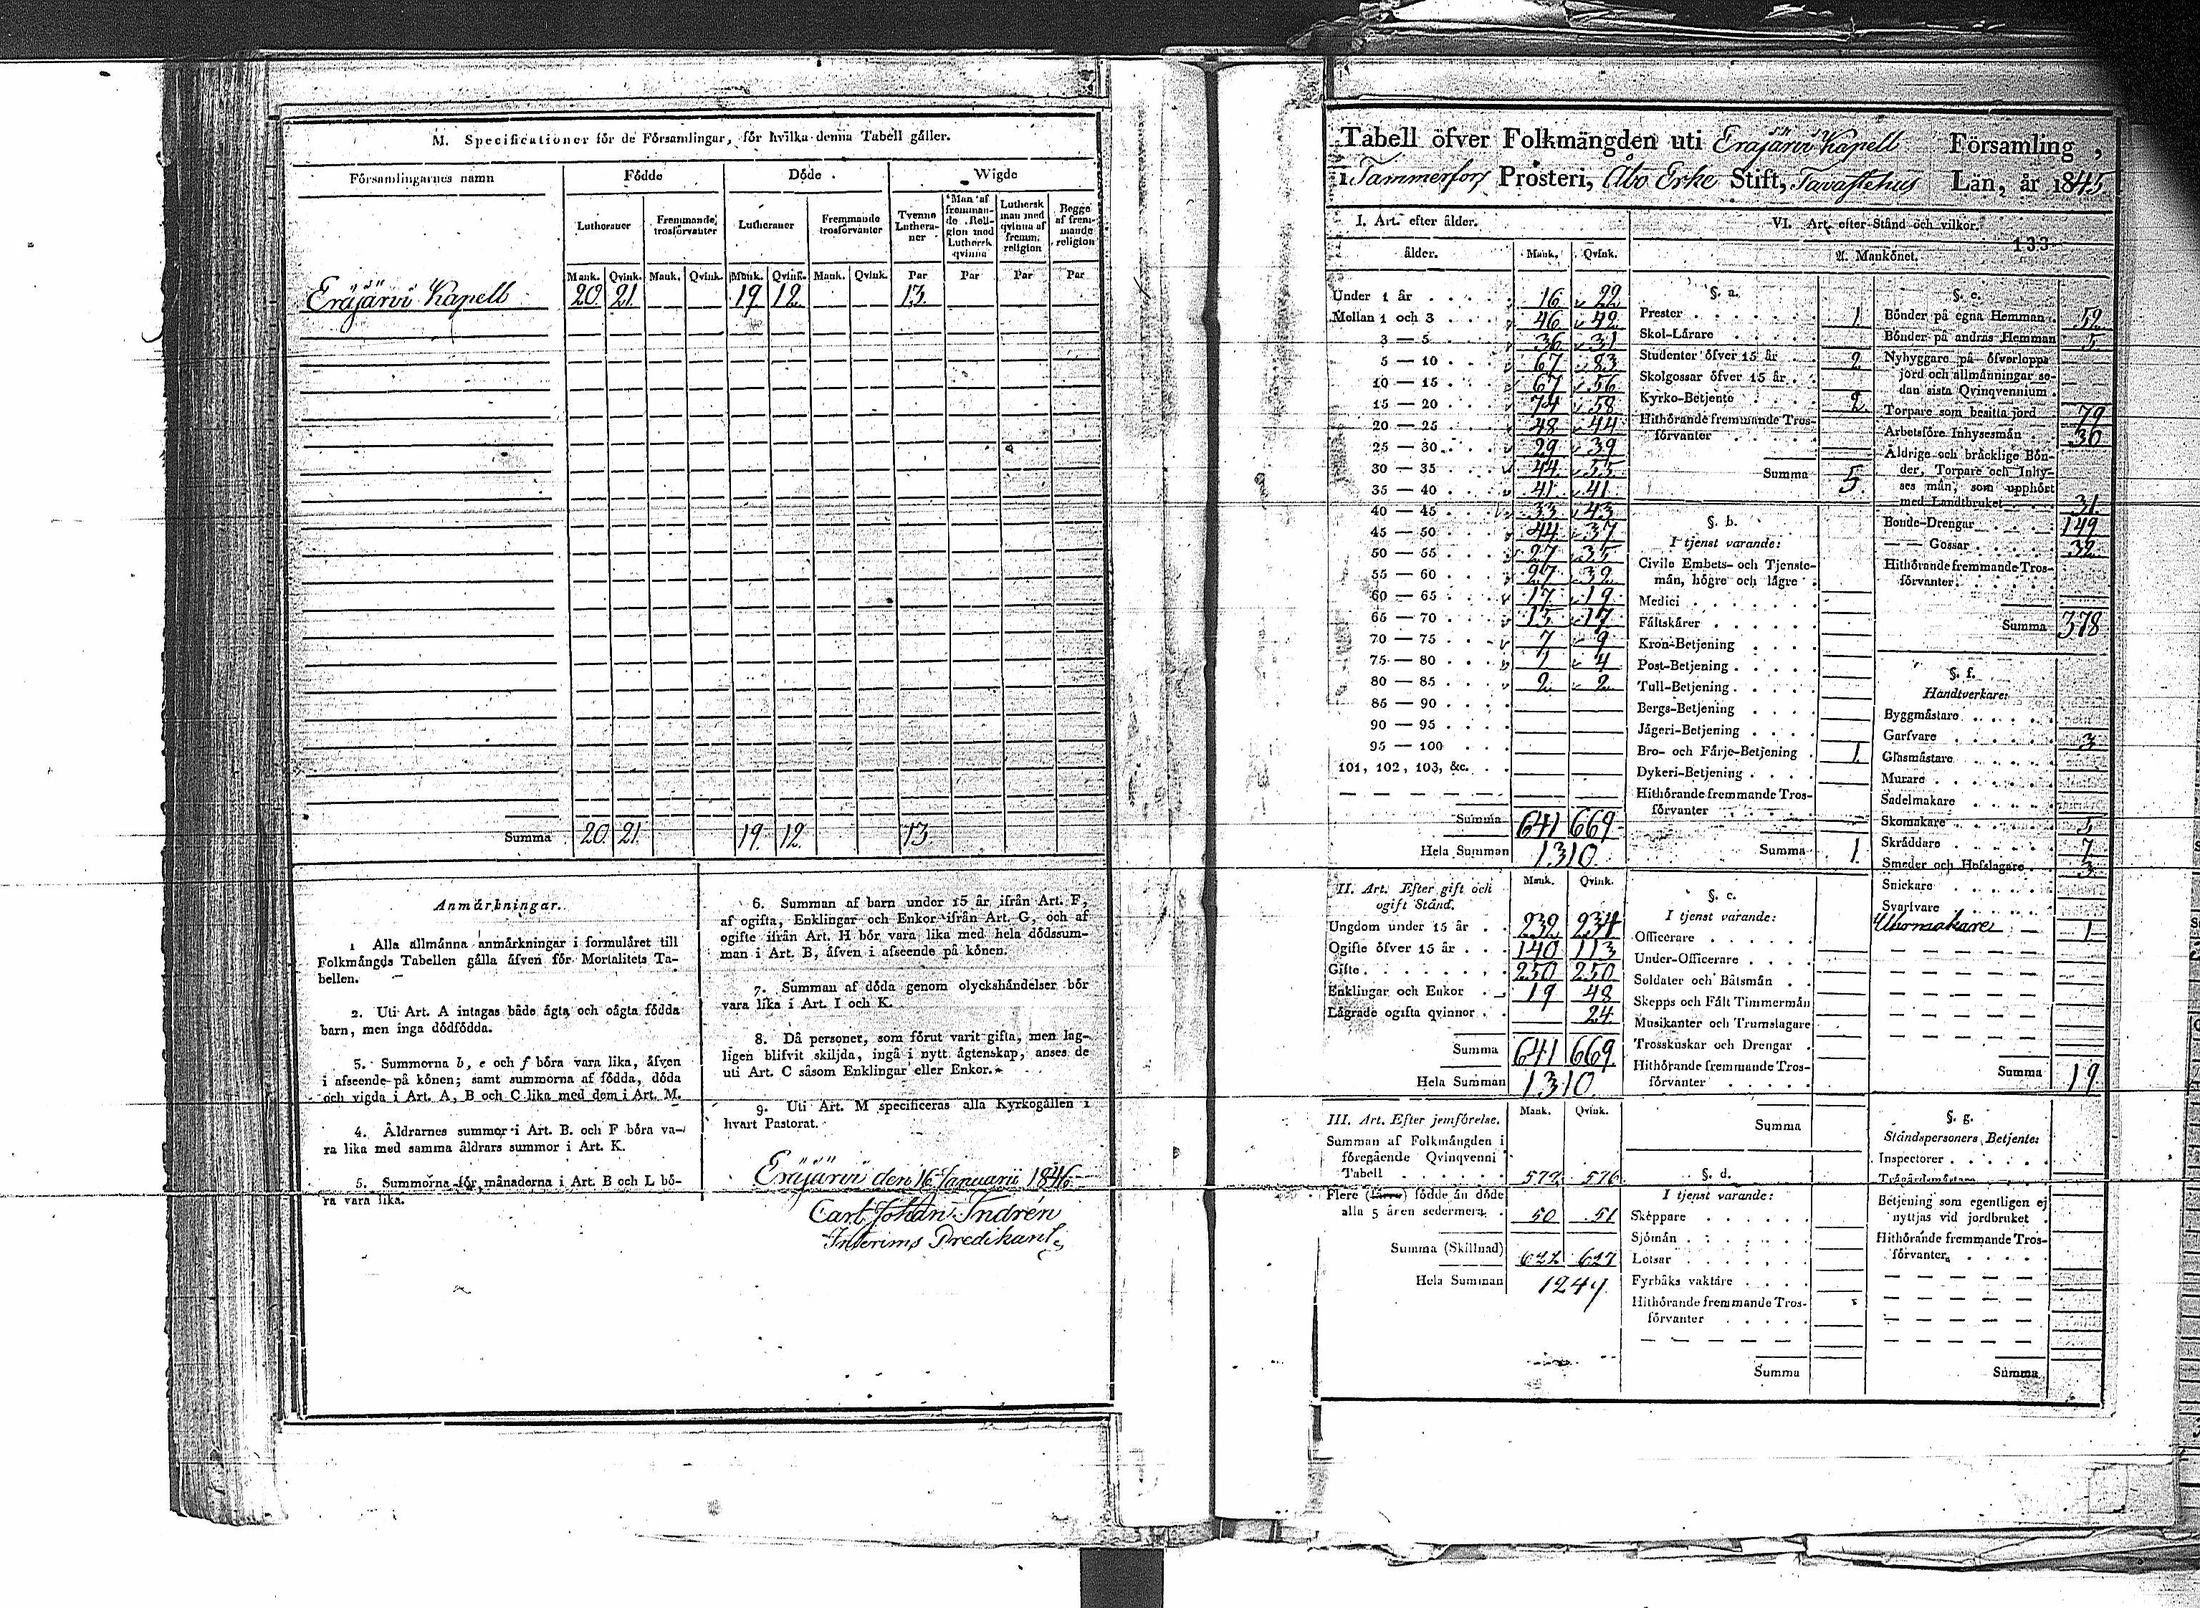 M. Specificationer för de Församlingar, för hvilka denna Tabell gäller.
Församlingarnes namn Födde Döde. Wigde
Lutheraner Fremmande trosförvanter Lutheraner Fremmande trosförvanter Tvenne Lutheraner Man af fremmande Religion med Luthersk qvinna Luthersk man med qvinna af fremm. religion Begge af fremmande religion
Mank. Qvink. Mank. Qvink. Mank. Qvink. Mank. Qvink. Par Par Par Par
Eräjärvi Kapell 20 21 19 12 13
Summa 20 21 19 12 13
Anmärkningar.
1 Alla allmänna anmärkningar i formuläret till
Folkmängds Tabellen gälla äfven för Mortalitets Ta-
bellen.
2. Uti Art. A intagas både ägta och oägta födda
barn, men inga dödfödda.
3. Summorna b, e och f böra vara lika, äfven
i afseende på könen; samt summorna af födda, döda
och vigda i Art. A, B och C lika med dem i Art. M.
4. Åldrarnes summor i Art. B. och F böra va-
ra lika med samma åldrars summor i Art. K.
5. Summorna för månaderna i Art. B och L bö-
ra vara lika.
6. Summan af barn under 15 år ifrån Art. F,
af ogifta, Enklingar och Enkor ifrån Art. G, och af
gifte ifrån Art. H bör vara lika med hela dödssum-
man i Art. B, äfven i afseende på könen.
7. Summan af döda genom olyckshändelser bör
vara lika i Art. I och K.
8. Då personer, som förut varit gifta, men lag-
ligen blifvit skiljda, ingå i nytt ägtenskap, anses de
uti Art. C såsom Enklingar eller Enkor.
9. Uti Art. M specificeras alla Kyrkogällen i
hvart Pastorat.
Eräjärvi den 16 Januarii 1846
Carl Johan Indrén
Interims Predikant
Tabell öfver Folkmängden uti Eräjärvi Kapell Församling,
i Tammerfors Prosteri, Åbo Erke Stift, Tavastehus Län, år 1845
133
I. Art. efter ålder.
ålder. Mank. Qvink.
Under 1 år 16 22
Mellan 1 och 3 46 42
3 — 5 36 31
5 — 10 67 83
10 — 15 67 56
15 — 20 74 58
20 — 25 48 44
25 — 30 29 39
30 — 35 44 55
35 — 40 41 41
40 — 45 33 43
45 — 50 44 37
50 — 55 27 35
55 — 60 27 32
60 — 65 17 19
65 — 70 15 17
70 — 75 7 9
75 — 80 1 4
80 — 85 2 2
85 — 90
90 — 95
95 — 100
101, 102, 103, &c.
Summa 641 669
Hela Summan 1310
II. Art. Efter gift och ogift Stånd. Mank. Qvink.
Ungdom under 15 år 232 234
Ogifte öfver 15 år 140 113
Gifte 250 250
Enklingar och Enkor 19 48
Lägrade ogifta qvinnor 24
Summa 641 669
Hela Summan 1310
III. Art. Efter jemförelse. Mank. Qvink.
Summan af Folkmängden i
föregående Qvinqvenni
Tabell 572 576
Flere (färre) födde än döde
alla 5 åren sedermera 50 51
Summa (Skillnad) 622 627
Hela Summan 1249
VI. Art. efter Stånd och vilkor.
A. Mankönet.
§. a.
Prester 1
Skol-Lärare
Studenter öfver 15 år 2
Skolgossar öfver 15 år
Kyrko-Betjente 2
Hithörande fremmande Tros-
förvanter
Summa 5
§. b.
I tjenst varande:
Civile Embets- och Tjenste-
män, högre och lägre
Medici
Fältskärer
Kron-Betjening
Post-Betjening
Tull-Betjening
Bergs-Betjening
Jägeri-Betjening
Bro- och Färje-Betjening 1
Dykeri-Betjening
Hithörande fremmande Tros-
förvanter
Summa 1
§. c.
I tjenst varande:
Officerare
Under-Officerare
Soldater och Båtsmän
Skepps och Fält Timmermän
Musikanter och Trumslagare
Trosskuskar och Drengar
Hithörande fremmande Tros-
förvanter
Summa
§. d.
I tjenst varande:
Skeppare
Sjömän
Lotsar
Fyrbåks vaktare
Hithörande fremmande Tros-
förvanter
Summa
§. e.
Bönder på egna Hemman 52
Bönder på andras Hemman 5
Nybyggare på öfverlopps
jord och allmänningar se-
dan sista Qvinqvennium
Torpare som besitta jord 79
Arbetsföre Inhysesmän 30
Åldrige och bräcklige Bön-
der, Torpare och Inhy-
ses män, som upphört
med Landtbruket 31
Bonde-Drengar 149
— — Gossar 32
Hithörande fremmande Tros-
förvanter
Summa 378
§. f.
Handtverkare:
Byggmästare
Garfvare 3
Glasmästare
Murare
Sadelmakare
Skomakare 5
Skräddare 7
Smeder och Hofslagare 3
Snickare
Svarfvare
Uhrmakare 1
Summa 19
§. g.
Ståndspersoners Betjente:
Inspectorer
Trägårdsmästare
Betjening som egentligen ej
nyttjas vid jordbruket
Hithörande fremmande Tros-
förvanter
Summa